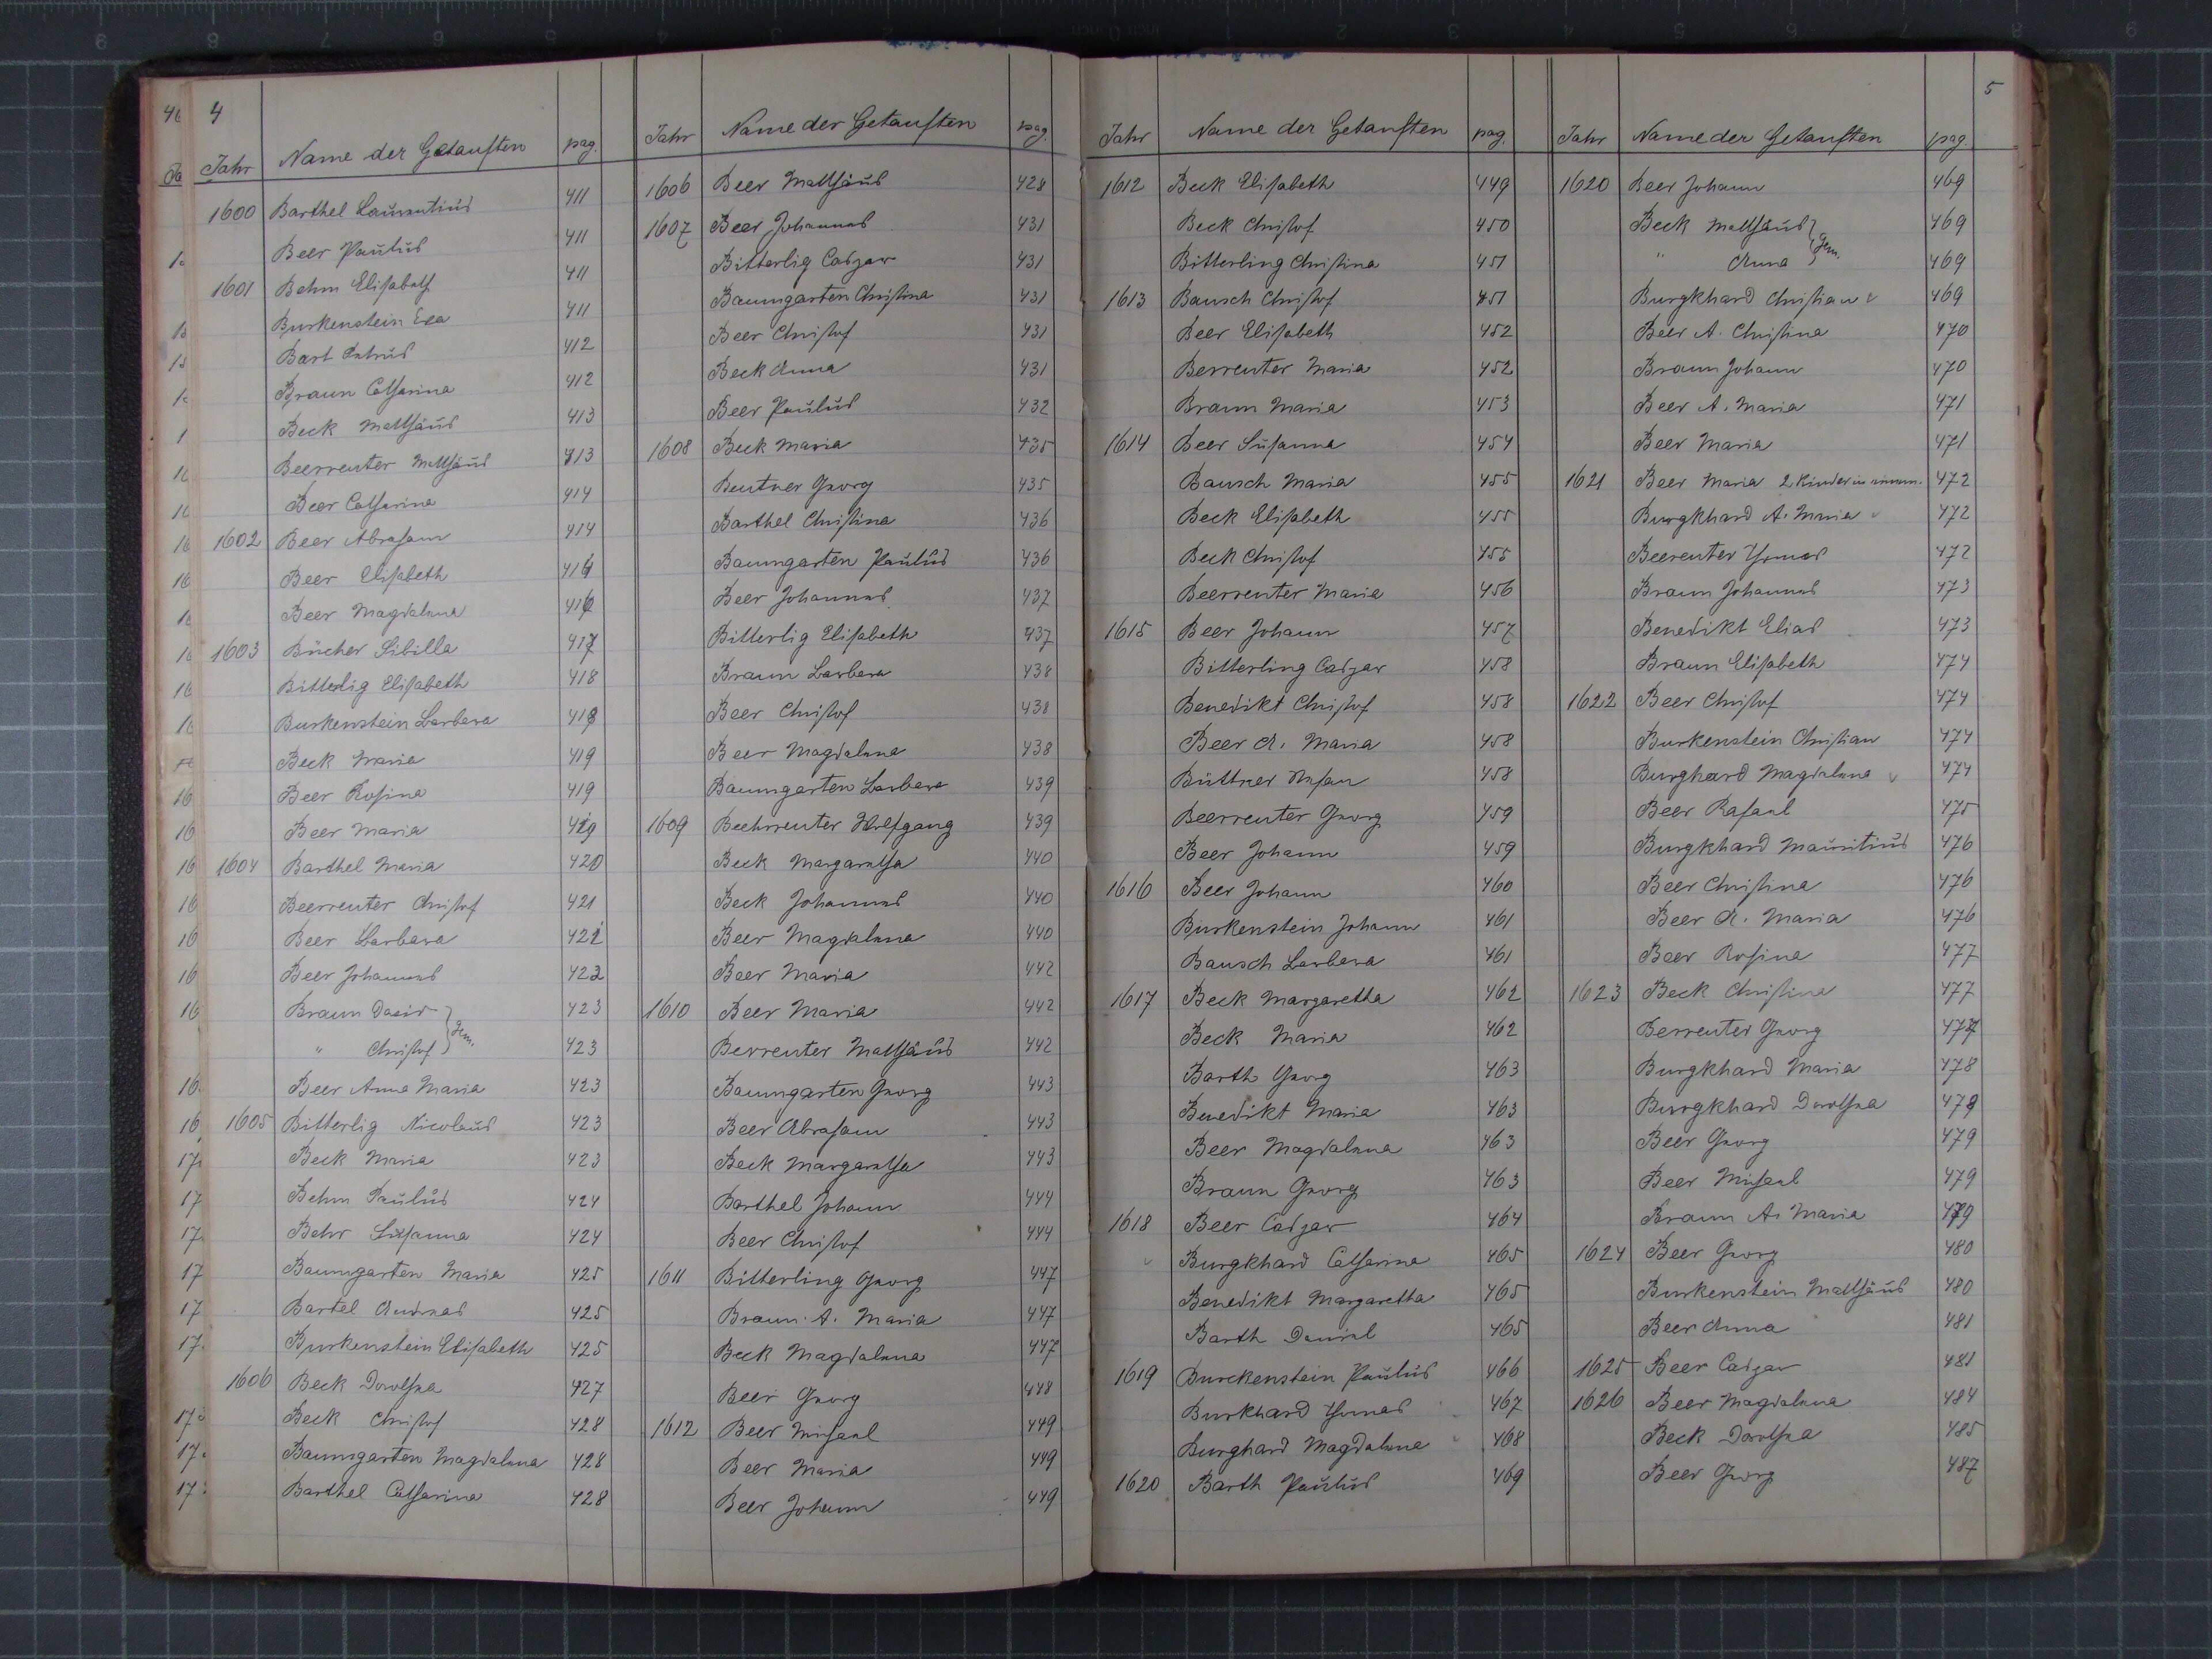 4
Jahr Name der Getauften pag.
1600 Barthel Laurentius 411
Beer Paulus 411
1601 Behm Elisabeth 411
Burkenstein Eva 411
Bart Petrus 412
Braun Catharina 412
Beck Matthäus 413
Beerreuter Matthäus 413
Beer Catharina 414
1602 Beer Abraham 414
Beer Elisabeth 416
Beer Magdalena 416
1603 Bücher Sibilla 417
Bitterlig Elisabeth 418
Burkenstein Barbara 418
Beck Maria 419
Beer Rosina 419
Beer Maria 419
1604 Barthel Maria 420
Beerreuter Christof 421
Beer Barbara 422
Beer Johannes 422
Braun David 423
" Christof } Gem. 423
Beer Anna Maria 423
1605 Bitterlig Nicolaus 423
Beck Maria 423
Behm Paulus 424
Behr Susanna 424
Baumgarten Maria 425
Bartel Andreas 425
Burkenstein Elisabeth 425
1606 Beck Dorothea 427
Beck Christof 428
Baumgarten Magdalena 428
Barthel Catharina 428
Jahr Name der Getauften pag.
1606 Beer Matthäus 428
1607 Beer Johannes 431
Bitterlig Caspar 431
Baumgarten Christina 431
Beer Christof 431
Beck Anna 431
Beer Paulus 432
1608 Beck Maria 435
Beutner Georg 435
Barthel Christina 436
Baumgarten Paulus 436
Beer Johannes 437
Bitterlig Elisabeth 437
Braun Barbara 438
Beer Christof 438
Beer Magdalena 438
Baumgarten Barbara 439
1609 Beehrreuter Wolfgang 439
Beck Margaretha 440
Beck Johannes 440
Beer Magdalena 440
Beer Maria 442
1610 Beer Maria 442
Berreuter Matthäus 442
Baumgarten Georg 443
Beer Abraham 443
Beck Margaretha 443
Barthel Johann 444
Beer Christof 444
1611 Bitterling Georg 447
Braun A. Maria 447
Beck Magdalena 447
Beer Georg 448
1612 Beer Michael 449
Beer Maria 449
Beer Johann 449
Jahr Name der Getauften pag.
1612 Beck Elisabeth 449
Beck Christof 450
Bitterling Christina 451
1613 Bausch Christof 451
Beer Elisabeth 452
Berreuter Maria 452
Braun Maria 453
1614 Beer Susanna 454
Bausch Maria 455
Beck Elisabeth 455
Beck Christof 455
Beerreuter Maria 456
1615 Beer Johann 457
Bitterling Caspar 458
Benedikt Christof 458
Beer A. Maria 458
Büttner 458
Beerreuter Georg 459
Beer Johann 459
1616 Beer Johann 460
Burkenstein Johann 461
Bausch Barbara 461
1617 Beck Margaretha 462
Beck Maria 462
Barth Georg 463
Benedikt Maria 463
Beer Magdalena 463
Braun Georg 463
1618 Beer Caspar 464
Burgkhard Catharina 465
Benedikt Margaretha 465
Barth Daniel 465
1619 Burckenstein Paulus 466
Burkhard Thomas 467
Burghard Magdalena 468
1620 Barth Paulus 469
5
Jahr Name der Getauften pag.
1620 Beer Johann 469
Beck Matthäus 469
" Anna } Gem. 469
Burgkhard Christian 469
Beer A. Christina 470
Braun Johann 470
Beer A. Maria 471
Beer Maria 471
1621 Beer Maria 2 Kinder in 472
Burgkhard A. Maria 472
Beereuter Thomas 472
Braun Johannes 473
Benedikt Elias 473
Braun Elisabeth 474
1622 Beer Christof 474
Burkenstein Christian 474
Burghard Magdalena 474
Beer Rafael 475
Burgkhard Mauritius 476
Beer Christina 476
Beer A. Maria 476
Beer Rosina 477
1623 Beck Christina 477
Berreuter Georg 477
Burgkhard Maria 478
Burgkhard Dorothea 479
Beer Georg 479
Beer Michael 479
Braun A. Maria 479
1624 Beer Georg 480
Burkenstein Matthäus 480
Beer Anna 481
1625 Beer Caspar 481
1626 Beer Magdalena 484
Beck Dorothea 485
Beer Georg 487